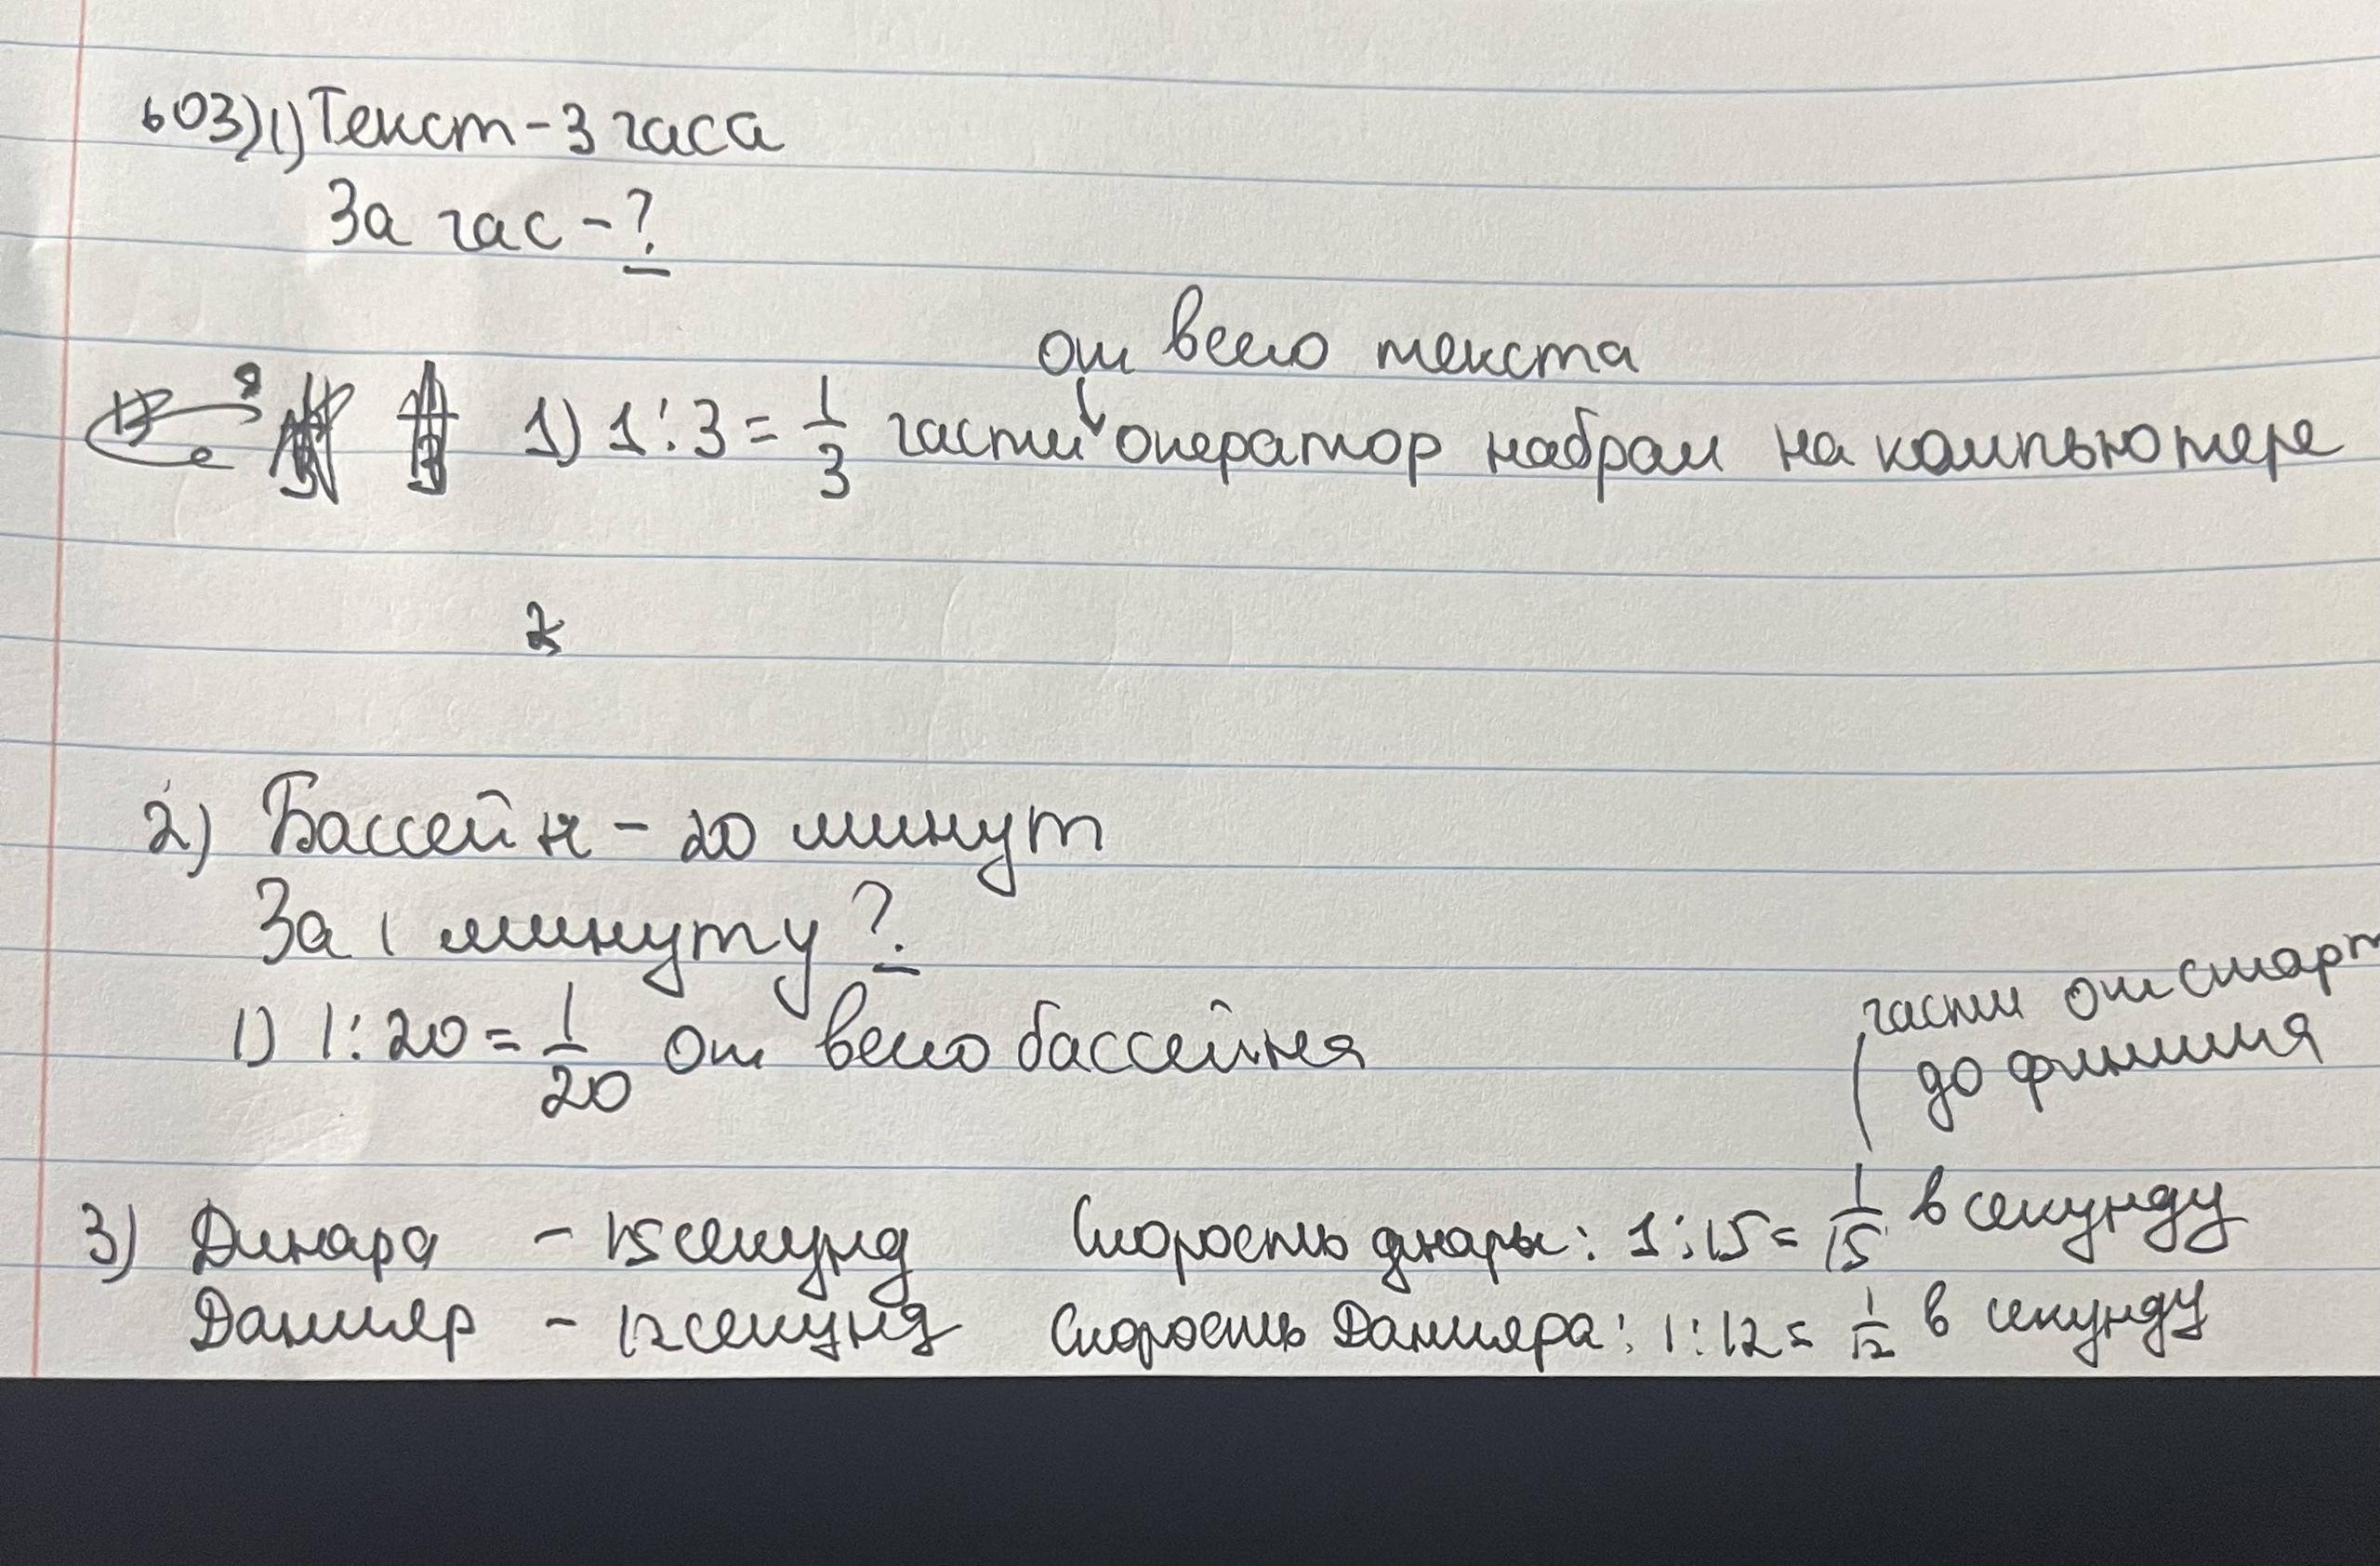 603) 1) Текст - 3 часа
За час - ?
от всего текста
1) 1 : 3 = 1/3 части оператор набрал на компьютере
2) Бассейн - 20 минут
За 1 минуту ?
1) 1 : 20 = 1/20 от всего бассейня
части от старт
до финиша
3) Динара - 15 секунд Скорость днары: 1 : 15 = 1/15 в секунду
Данияр - 12 секунд Скорость Данияра: 1 : 12 = 1/12 в секунду